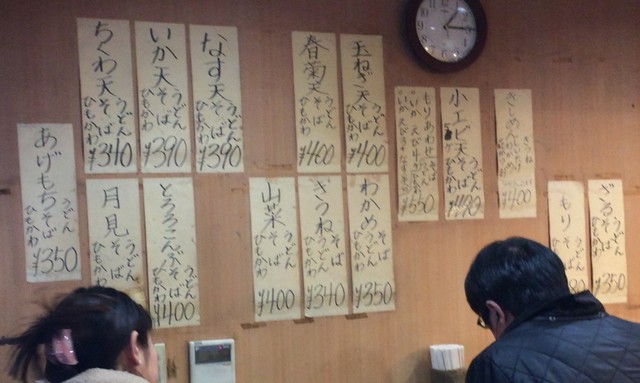 ちくわ天 うどん そば ひもかわ ¥340
いか天 うどん そば ひもかわ ¥390
なす天 うどん そば ひもかわ ¥390
春菊天 うどん そば ひもかわ ¥400
玉ねぎ天 うどん そば ひもかわ ¥400
もりあわせ そば うどん ひもかわ ¥550
小エビ天 うどん そば ひもかわ ¥490
¥400
あげもちそば うどん ひもかわ ¥350
月見 うどん そば ひもかわ
とろろこんぶそば うどん ひもかわ ¥400
山菜 うどん そば ひもかわ ¥400
きつね そば うどん ひもかわ ¥340
わかめ そば うどん ひもかわ ¥350
もり うどん そば ひも
ざる そば うどん ¥350